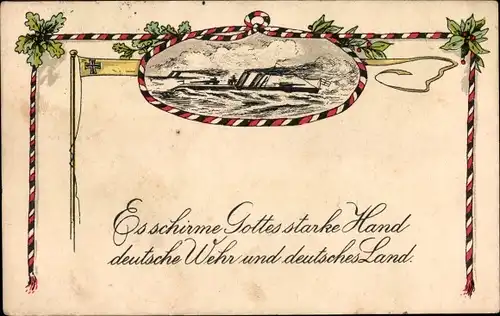 Es schirme Gottes starke Hand
deutsche Wehr und deutsches Land.